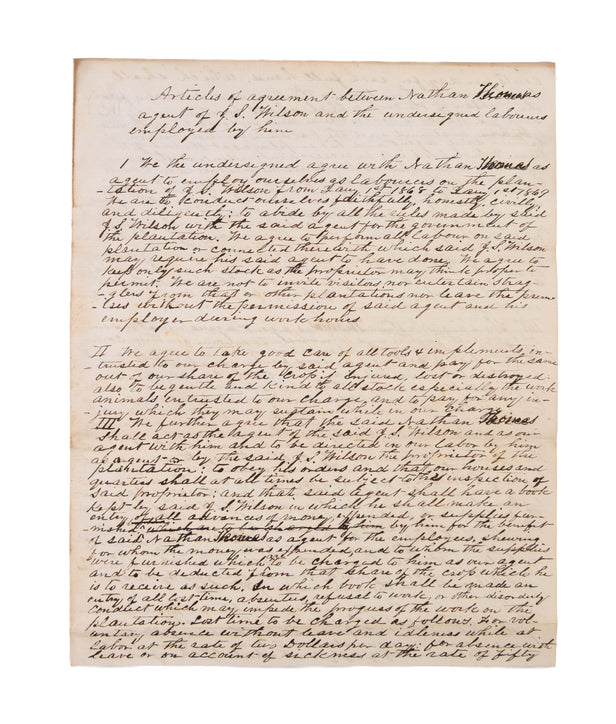 Articles of agreement between Nathan Thomas
agent of J. S. Wilson and the undersigned labourers
employed by him
1 We the undersigned agree with Nathan Thomas as
agent to employ ourselves as labourers on the plan-
-tation of J. S. Wilson from Jany 1st 1868 to Jany 1st 1869
We are to conduct ourselves faithfully, honestly, civilly,
and diligently; to abide by all the rules made by said
J. S. Wilson with the said agent for the government of
the plantation. We agree to perform all labour on said
plantation or connected therewith which said J. S. Wilson
may require his said agent to have done. We agree to
keep only such stock as the proprietor may think proper to
permit. We are not to invite visitors nor entertain strag-
-glers from that or other plantations nor leave the prem-
-ises without the permission of said agent and his
employer during work hours
II We agree to take good care of all tools & implements, in-
-trusted to our charge by said agent and pay for the same
out of our share of the crop if injured, lost or destroyed;
also to be gentle and kind to all stock especially the work
animals intrusted to our charge, and to pay for any in-
-jury which they may sustain while in our charge
III We further agree that the said Nathan Thomas
shall act as the agent of the said J. S. Wilson and as our
agent with him and to be directed in our labor by him
as agent or by the said J. S. Wilson the proprietor of the
plantation; to obey his orders and that our houses and
quarters shall at all times be subject to the inspection of
said proprietor; and that said agent shall have a book
kept by said J. S. Wilson in which he shall make an
entry of all advances of money expended, or supplies fur-
-nished by him for the benefit
of said Nathan Thomas as agent for the employees, shewing
for whom the money was expended, and to whom the supplies
were furnished which to be charged to him as our agent
and to be deducted from that share of the crop which he
is to receive as such. In which book shall be made an
entry of all lost time, absentees, refusal to work, or other disorderly
conduct which may impede the progress of the work on the
plantation. Lost time to be charged as follows. For vol-
-untary absence without leave and idleness while at
labor at the rate of two Dollars per day; for absence with
leave or on account of sickness at the rate of fifty